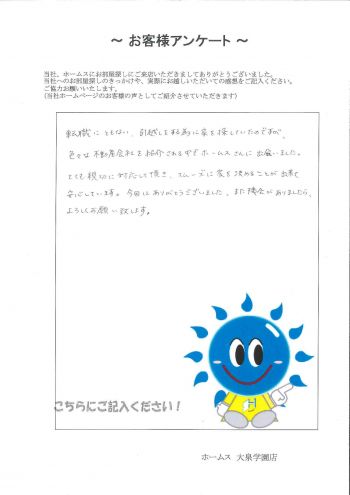 ～ お客様アンケート ～
当社、ホームスにお部屋探しにご来店いただきましてありがとうございました。
当社へのお部屋探しのきっかけや、実際にお越しいただいての感想をご記入ください。
ご協力お願いいたします。
(当社ホームページのお客様の声としてご紹介させていただきます)
転職にともない、引越しをする為に家を探していたのですが、
色々な不動産会社を紹介される中でホームスさんに出会いました。
とても親切に対応して頂き、スムーズに家を決めることが出来て
安心しています。今回はありがとうございました。また機会がありましたら、
よろしくお願い致します。
こちらにご記入ください！
ホームス 大泉学園店